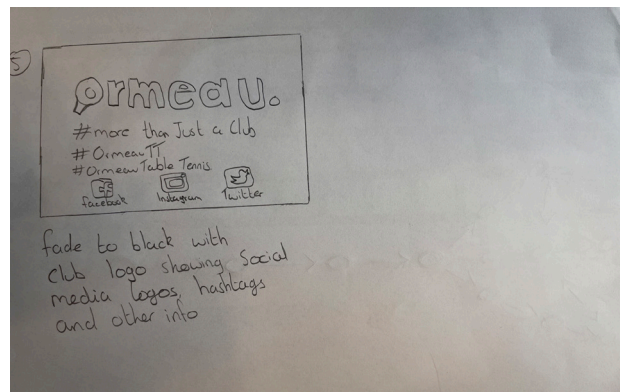 5
ormeau.
#more than Just a Club
#OrmeauTT
#OrmeauTable Tennis
facebook Instagram Twitter
fade to black with
club logo showing Social
media logos, hashtags
and other info